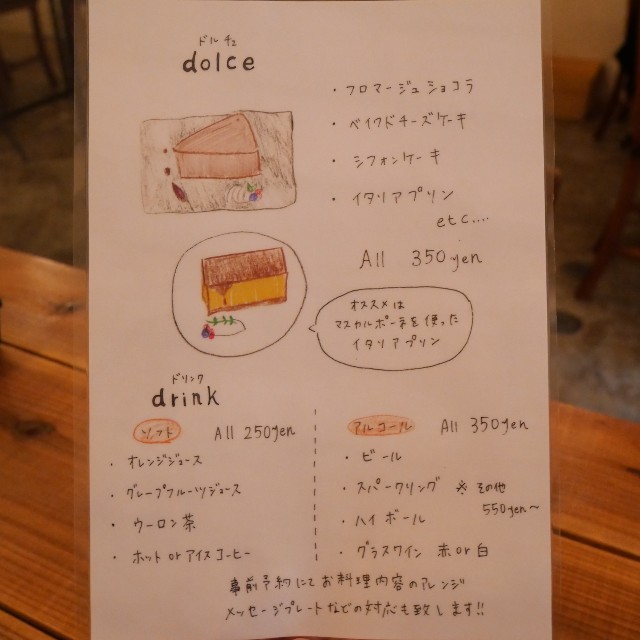 ドルチェ
dolce
・フロマージュショコラ
・ベイクドチーズケーキ
・シフォンケーキ
・イタリアプリン
etc....
All 350yen
オススメは
マスカルポーネを使った
イタリアプリン
ドリンク
drink
ソフト All 250yen
・オレンジジュース
・グレープフルーツジュース
・ウーロン茶
・ホット or アイスコーヒー
アルコール All 350yen
・ビール
・スパークリング ※その他
550yen〜
・ハイボール
・グラスワイン 赤or白
事前予約にてお料理内容のアレンジ
メッセージプレートなどの対応も致します!!